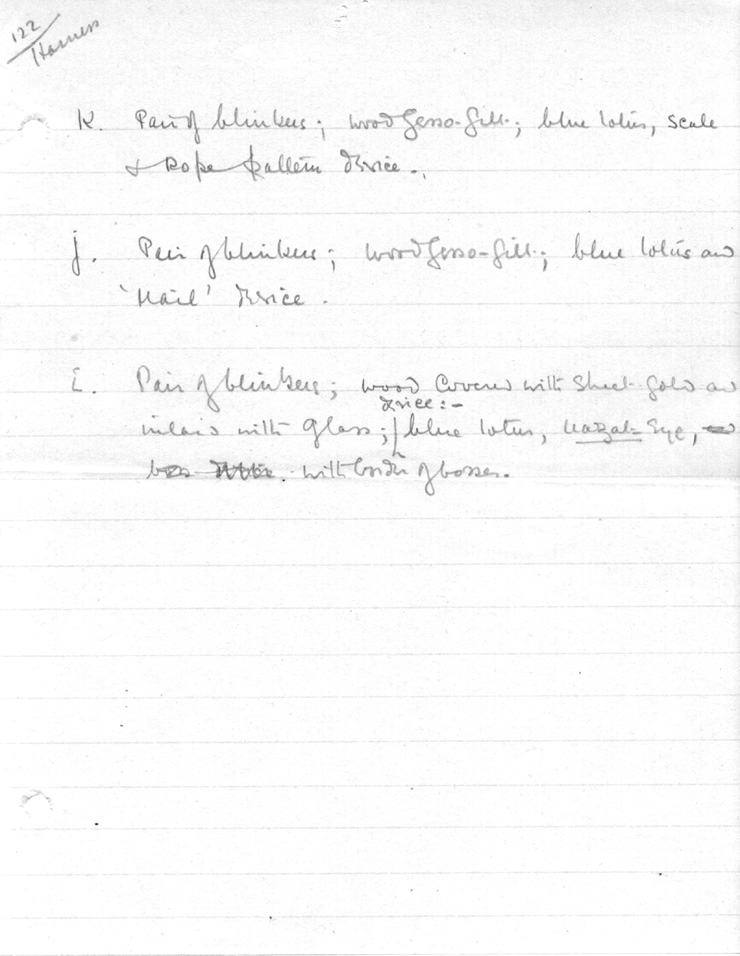 122
Harness
K. Pair of blinkers; wood gesso-gilt; blue lotus, scale
& Rope pattern device.
j. Pair of blinkers; wood gesso-gilt; blue lotus and
'Nail' device.
i. Pair of blinkers; wood covered with sheet-gold and
device:-
inlaid with glass; blue lotus, uazat-Eye,
with border of bosses.